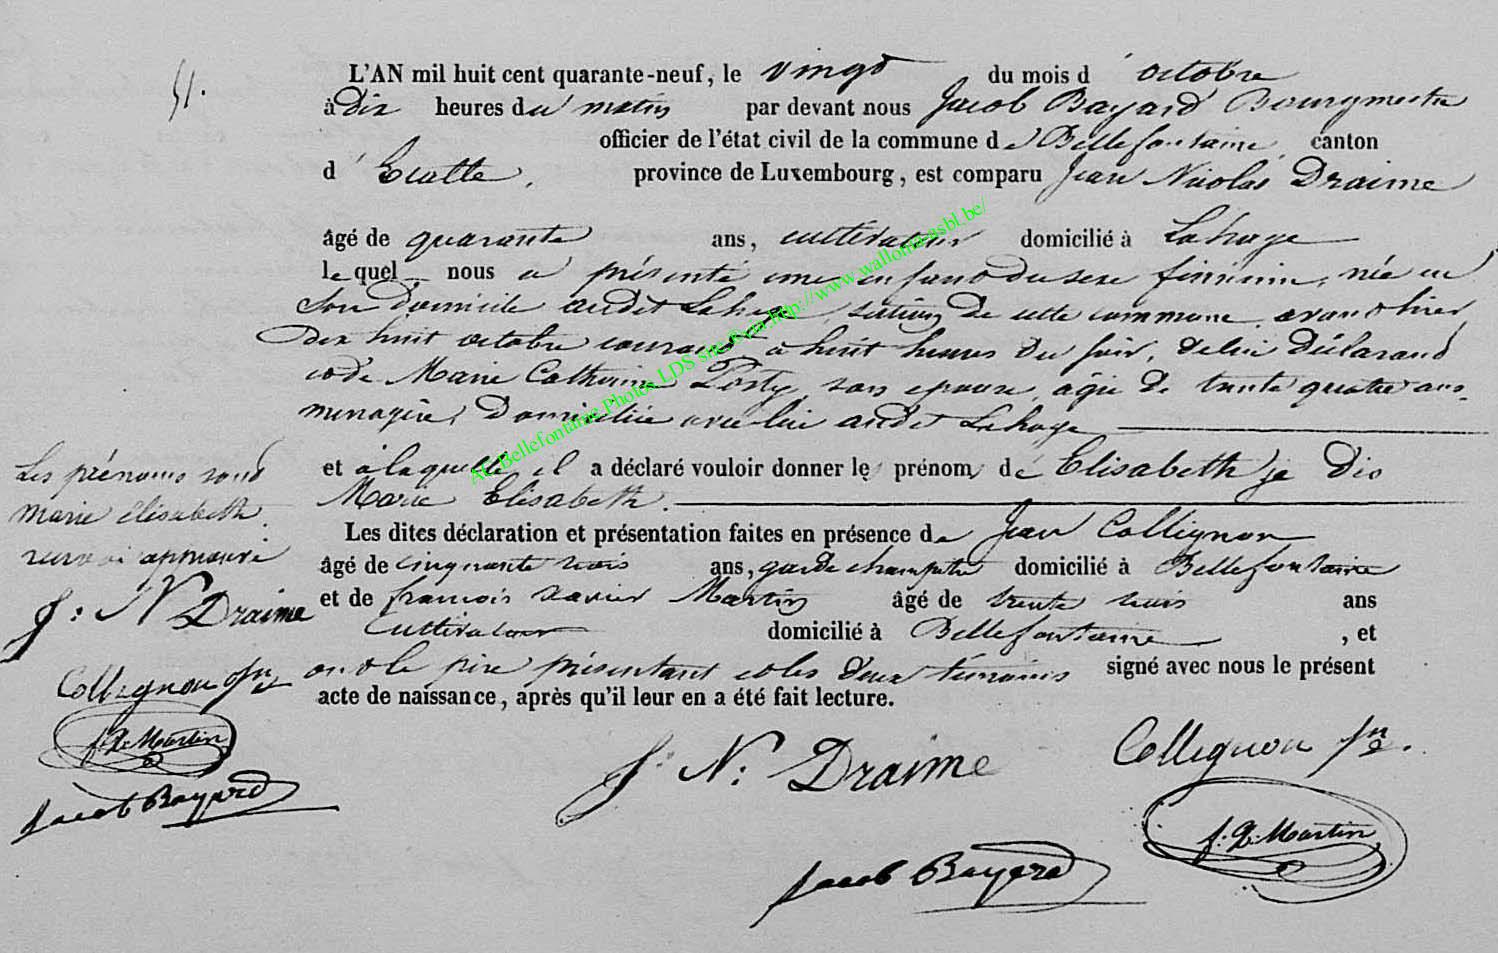 51.
L'AN mil huit cent quarante-neuf, le vingt du mois d'octobre
à Dix heures du matin par devant nous Jacob Bayard Bourgmestre
officier de l'état civil de la commune de Bellefontaine, canton
d'Etalle, province de Luxembourg, est comparu Jean Nicolas Draime
âgé de quarante ans, cultivateur domicilié à Lahage
lequel nous a présenté une enfant du sexe féminin, née en
son domicile audit Lahage, section de cette commune, avant hier
dix huit octobre courant à huit heures du soir, de lui déclarant
et de Marie Catherine Posty, son epouse, agée de trente quatre ans,
menagère, domiciliée avec lui audit Lahage
et à laquelle il a déclaré vouloir donner les prénoms de Elisabeth je dis
Marie Elisabeth.
Les dites déclaration et présentation faites en présence de Jean Collignon
âgé de cinquante trois ans, garde champêtre domicilié à Bellefontaine
et de françois xavier Martin âgé de trente trois ans
cultivateur domicilié à Bellefontaine, et
ont le père présentant et les deux témoins signé avec nous le présent
acte de naissance, après qu'il leur en a été fait lecture.
Les prénoms sont
Marie elisabeth.
renvoi approuvé
J: N Draime
Collignon Jn
f. X. Martin
Jacob Bayard
J. N: Draime
Collignon Jn.
f. X. Martin
Jacob Bayard
AE Bellefontaine Photos LDS site © via http://www.wallonia-asbl.be/